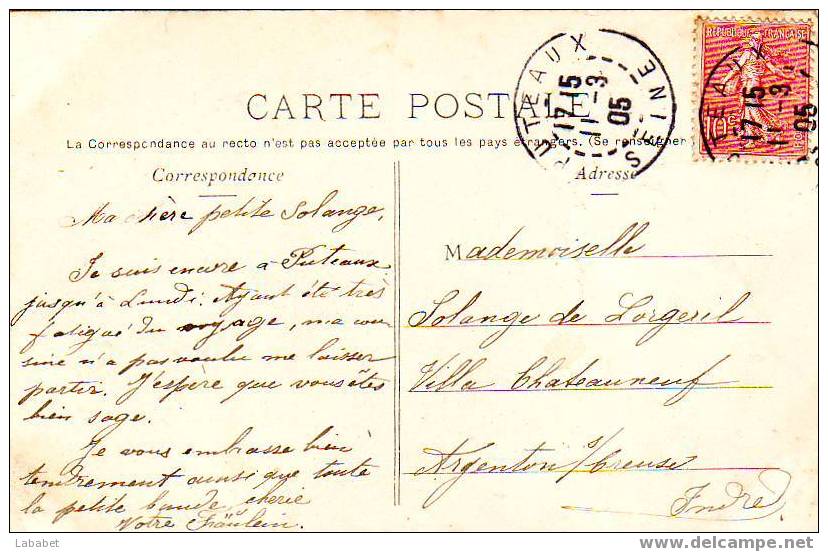 CARTE POSTALE
La Correspondance au recto n'est pas acceptée par tous les pays étrangers. (Se renseigner
Correspondance
Ma chère petite Solange,
Je suis encore à Puteaux
jusqu'à Lundi. Ayant été très
fatiguée du voyage, ma cou-
sine n'a pas voulu me laisser
partir. J'espère que vous êtes
bien sage.
Je vous embrasse bien
tendrement ainsi que toute
la petite bande chérie
Votre Fräulein.
Adresse
Mademoiselle
Solange de Lorgeril
Villa Chateauneuf
Argenton s/Creuse
Indre
PUTEAUX
17 15
11 -3
05
SEINE
REPUBLIQUE FRANÇAISE
10c
17 15
11 -3
05
Lababet
http://www.delcampe.net